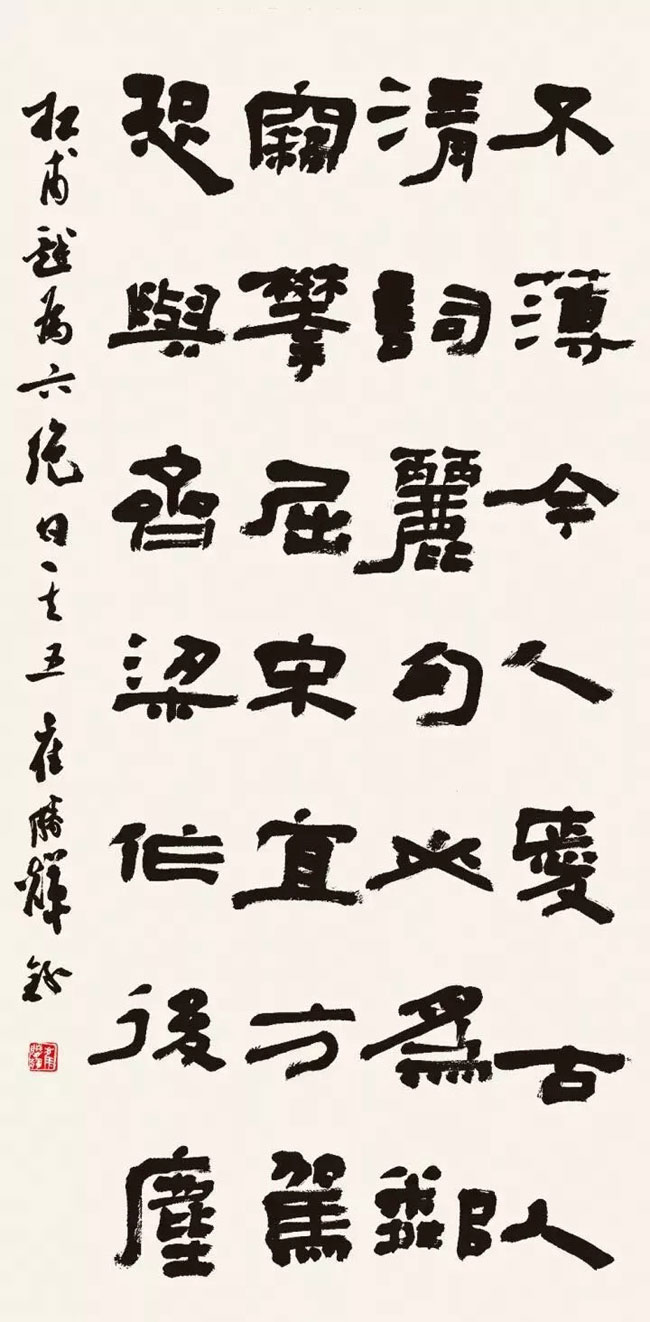 不薄今人愛古人
清詞麗句必爲鄰
竊攀屈宋宜方駕
恐與齊梁作後塵
杜甫戲為六絕句其五 崔勝輝 錄